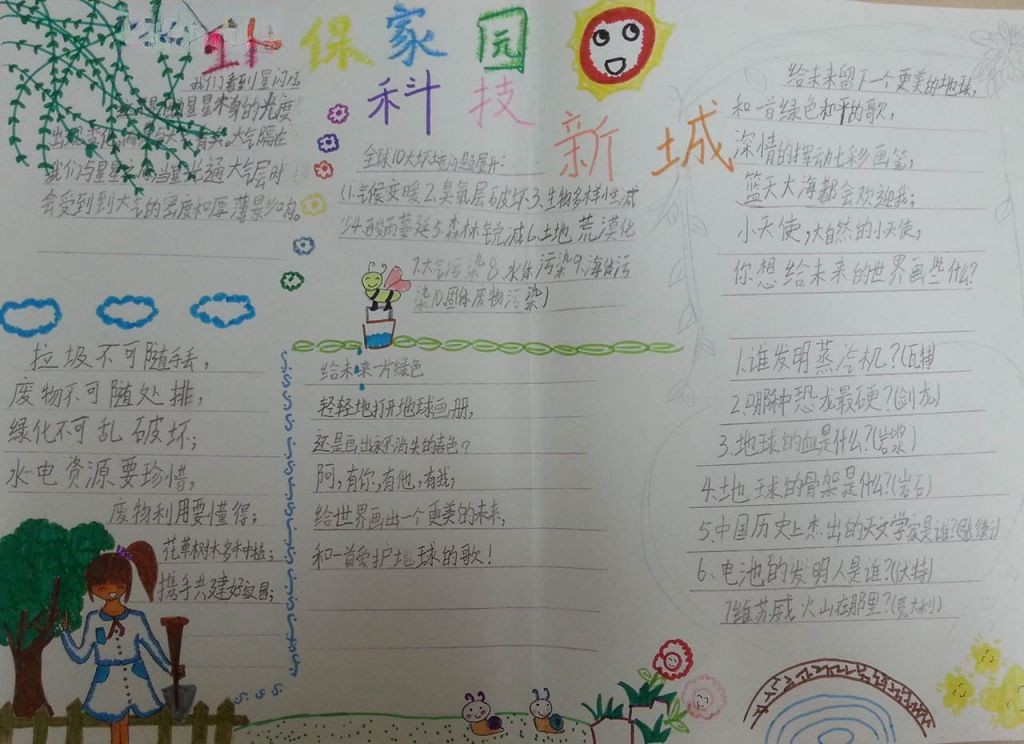 环保家园
科技
新城
我们看到星闪闪
星星本身的光度
出现变化，而是与大气有关。大气隔在
我们与星星之间，当星光通大气层时
会受到到大气的密度和厚薄影响。
垃圾不可随手丢，
废物不可随处排，
绿化不可乱破坏；
水电资源要珍惜，
废物利用要懂得；
花草树木多种植；
携手共建好家园；
全球10大环境问题展开：
(1.气候变暖2.臭氧层破坏3.生物多样性减
少4.酸雨蔓延5.森林锐减6.土地荒漠化
7.大气污染8.水体污染9.海洋污
染10.固体废物污染)
给未来一片绿色
轻轻地打开地球画册，
还是画出永不消失的春色？
阿，有你，有他，有我，
给世界画出一个更美的未来，
和一首爱护地球的歌！
给未来留下一个更美的地球，
和一首绿色和平的歌，
深情的挥动七彩画笔，
蓝天大海都会欢迎我；
小天使，大自然的小天使，
你想给未来的世界画些什么？
1.谁发明蒸汽机？(瓦特)
2.哪种恐龙最硬？(剑龙)
3.地球的血是什么？(岩浆)
4.地球的骨架是什么？(岩石)
5.中国历史上杰出的天文学家是谁？
6、电池的发明人是谁？(伏特)
7.维苏威火山在那里？(意大利)